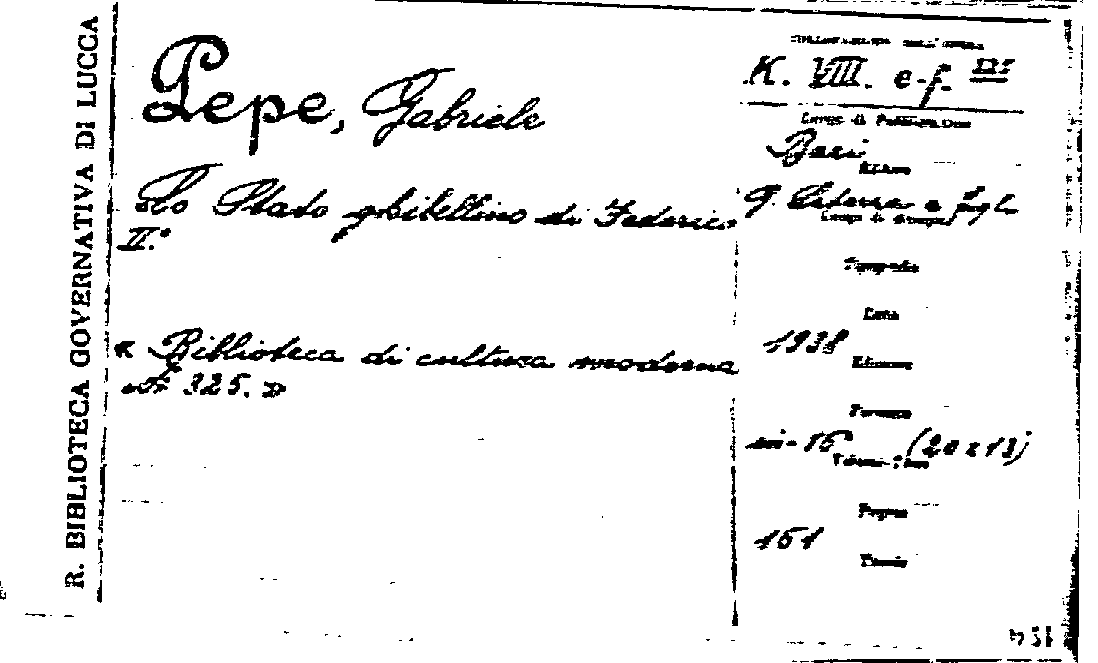 R. BIBLIOTECA GOVERNATIVA DI LUCCA
Pepe, Gabriele
Lo Stato ghibellino di Federico
II.°
« Biblioteca di cultura moderna
N° 325. »
K. VIII. e-f.
Luogo di Pubblicazione
Bari
Editore
G. Laterza e figli
Luogo di Stampa
Tipografia
Data
1938
Edizione
Formato
in-16 (20x13)
Pagine
151